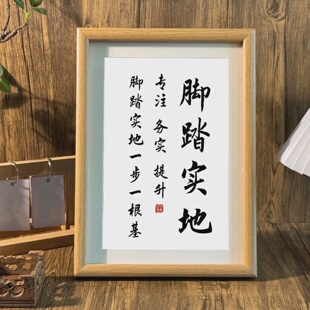 脚踏实地
专注 务实 提升
脚踏实地一步一根基